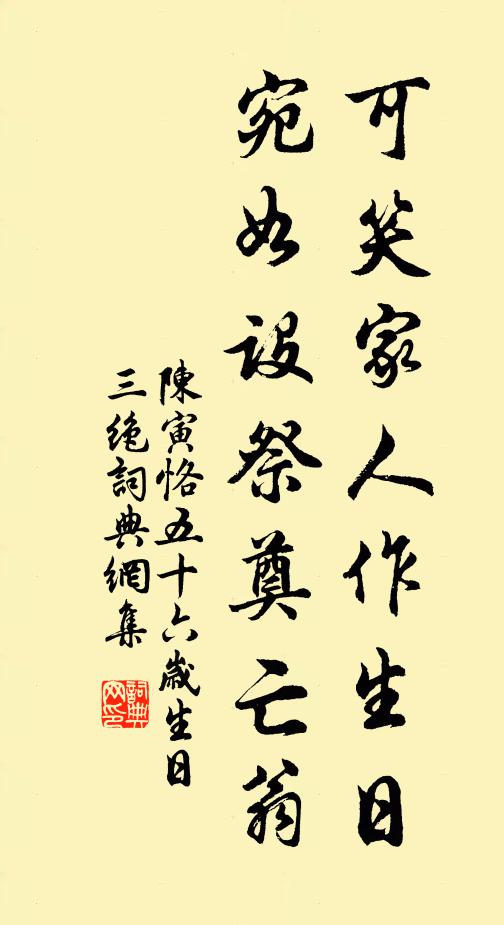 可笑家人作生日
宛如設祭奠亡翁
陳寅恪五十六歲生日
三絶詞典網集
詞典
网印